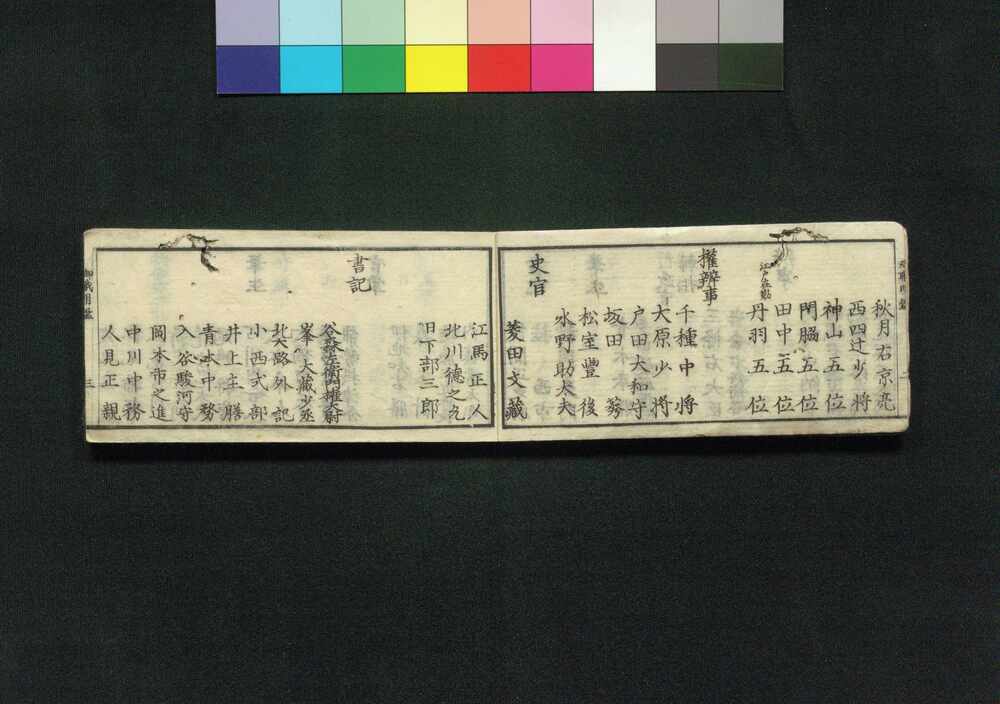 秋月右京亮
西四辻少将
神山五位
門脇五位
田中五位
江戸在勤
丹羽五位
権辨事
千種中将
大原少将
戸田大和守
坂田莠
松室豊後
水野助大夫
史官
菱田文藏
江馬正人
北川徳之允
日下部三郎
書記
谷森左兵衛権尉
峯大藏少丞
北大路外記
小西式部
井上主膳
青木中務
入谷駿河守
岡本市之進
中川中務
人見正親
三